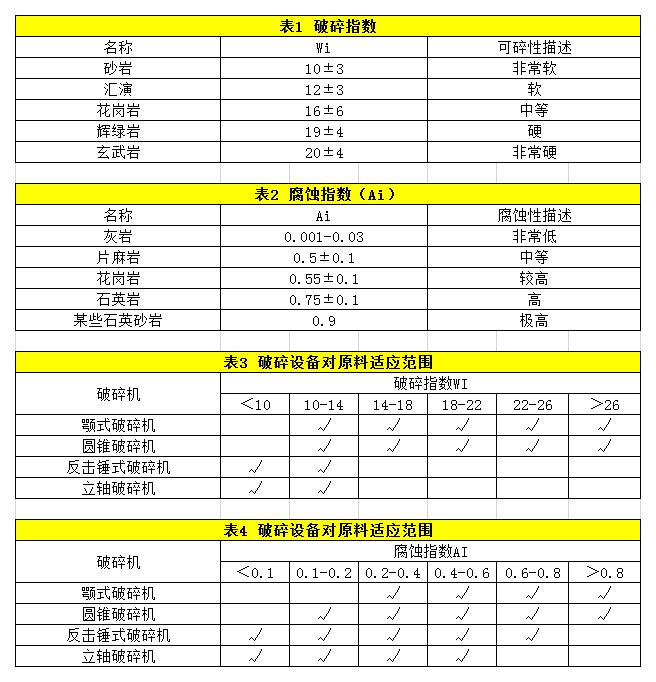 表1 破碎指数
名称 Wi 可碎性描述
砂岩 10±3 非常软
汇演 12±3 软
花岗岩 16±6 中等
辉绿岩 19±4 硬
玄武岩 20±4 非常硬
表2 腐蚀指数（Ai）
名称 Ai 腐蚀性描述
灰岩 0.001-0.03 非常低
片麻岩 0.5±0.1 中等
花岗岩 0.55±0.1 较高
石英岩 0.75±0.1 高
某些石英砂岩 0.9 极高
表3 破碎设备对原料适应范围
破碎机 破碎指数WI
＜10 10-14 14-18 18-22 22-26 ＞26
颚式破碎机 √ √ √ √ √
圆锥破碎机 √ √ √ √ √
反击锤式破碎机 √ √
立轴破碎机 √ √
表4 破碎设备对原料适应范围
破碎机 腐蚀指数AI
＜0.1 0.1-0.2 0.2-0.4 0.4-0.6 0.6-0.8 ＞0.8
颚式破碎机 √ √ √ √
圆锥破碎机 √ √ √ √ √
反击锤式破碎机 √ √ √ √ √
立轴破碎机 √ √ √ √